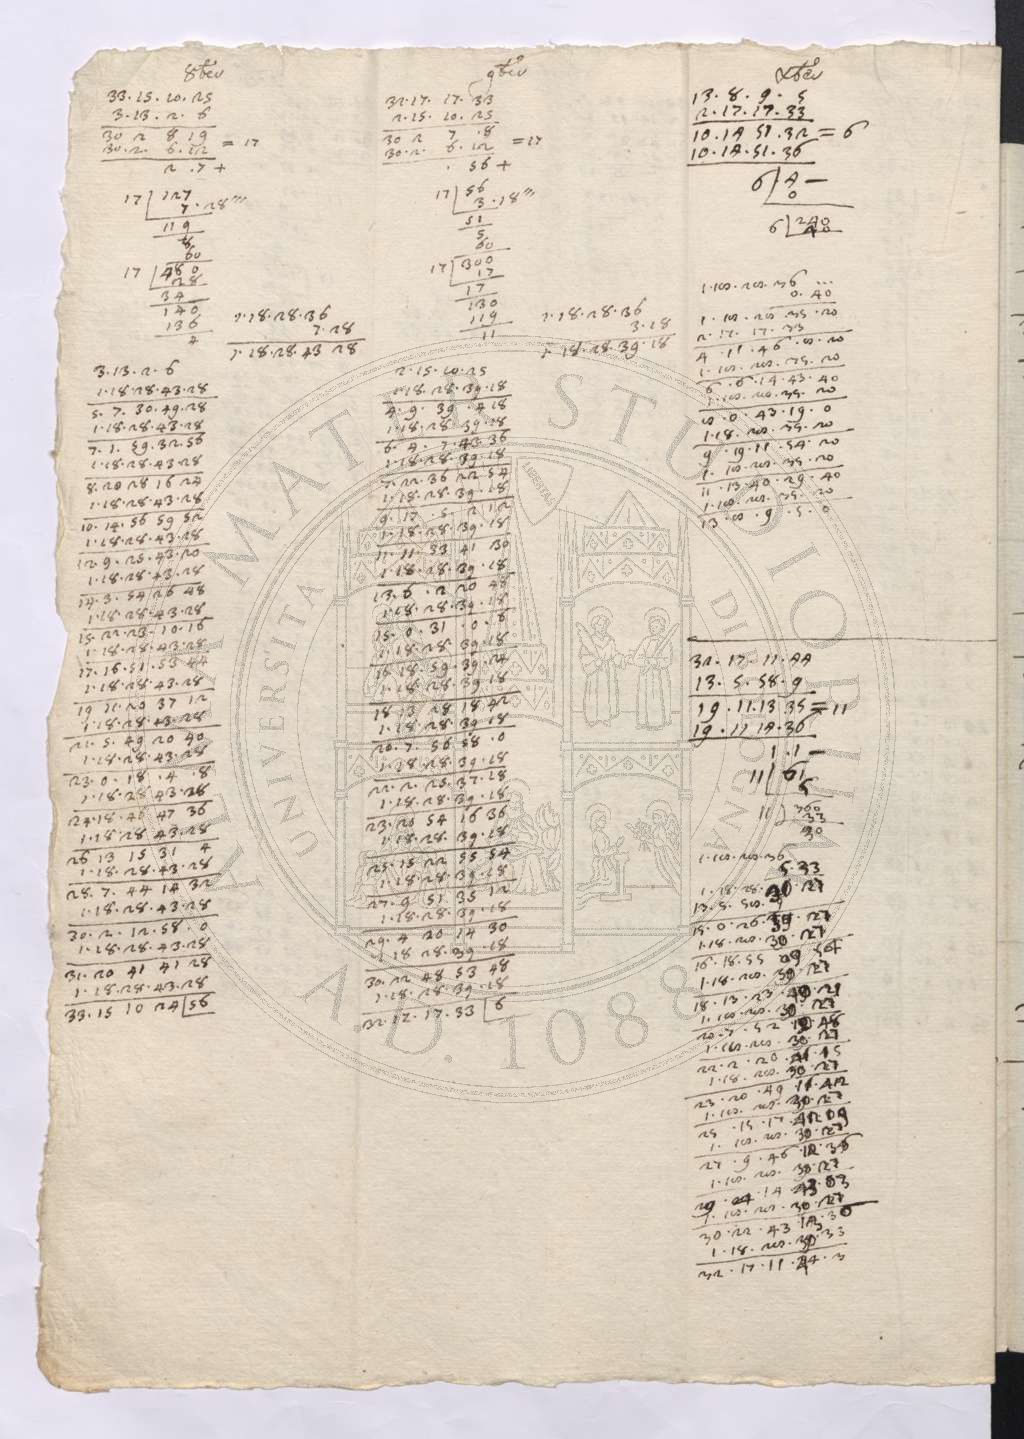 8bre
33.15.10.25
3.13.2.6
30 2 8 19 = 17
30.2.6.12
2.7+
17 127
7.28'''
119
8
60
17 480
28
34
140
136
4
1.18.28.36
7.28
1.18.28.43 28
3.13.2.6
1.18.28.43.28
5.7.30.49.28
1.18.28.43.28
7.1.59.32.56
1.18.28.43.28
8.20 28 16 24
1.18.28.43.28
10.14.56 59 52
1.18.28.43.28
12.9.25.43.20
1.18.28.43.28
14.3.54 26 48
1.18.28.43.28
15.22.23.10.16
1.18.28.43.28
17.16.51.53 44
1.18.28.43.28
19 11 20 37 12
1.18.28.43.28
21.5.49 20 40
1.18.28.43.28
23.0.18.4.8
1.18.28 43 28
24.18.46 47 36
1.18.28 43.28
26 13 15 31 4
1.18.28.43.28
28.7.44 14 32
1.18.28.43.28
30.2.12.58.0
1.18.28.43.28
31.20 41 41 28
1.18.28.43.28
33.15 10 24 56
9bre
32.17.17.33
2.15.10.25
30 2 7.8 = 17
30.2.6.12
56+
17 56
3.18'''
51
5
60
17 300
17
17
130
119
11
1.18.28.36
3.18
1.18.28.39.18
2.15.10.25
1.18.28.39.18
4.9.39.4 18
1.18.28.39.18
6.4.7.43 36
1.18.28.39.18
7.22 36 22 54
1.18.28.39.18
9.17.5.2 12
1.18.28.39.18
11.11.33 41 30
1.18.28.39.18
13.6.2 20 48
1.18.28.39.18
15.0.31.0.6
1.18.28.39.18
16.18.59.39.24
1.18.28.39.18
18 13 28 18 42
1.18.28.39.18
20.7.56 58.0
1.18.28.39.18
22.2.25.37.18
1.18.28.39.18
23.20 54 16 36
1.18.28.39.18
25.15 22 55 54
1.18.28.39.18
27.9 51 35 12
1.18.28.39.18
29.4 20 14 30
1.18 28.39.18
30.22 48 53 48
1.18.28.39.18
32.17.17.33 6
Xbre
13.8.9.5
2.17.17.33
10.14 51.32 = 6
10.14.51.36
6 4 —
0
6 240
40
1.18.28.36
0.40
1.18.28 35.20
2.17.17.33
4.11.46.8.20
1.18.28.35.20
6.6.14.43.40
1.18.28.35.20
8.0.43.19.0
1.18.28.35.20
9.19.11.54.20
1.18.28.35.20
11.13.40.29.40
1.18.28.35.20
13.8.9.5.0
32.17.11.44
13.5.58.9
19.11.13 35 = 11
19.11 14.36
1.1 —
11 61
5
11 360
33
30
1.18.28.36
5.33
1.18.28.30 27
13.5.58.9
15.0.26.39.27
1.18.28.30.27
16.18.55 09 54
1.18.28.30.27
18.13.23.40.21
1.18.28.30.27
20.7.52 10 48
1.18.28.30 27
22.2.20.41.15
1.18.28.30 27
23.20.49 11.42
1.18.28.30.27
25.15.17.42 09
1.18.28.30.27
27.9.46 12 36
1.18.28.30.27
29.04.14.43.03
1.18.28.30.27
30.22.43 13.30
1.18.28.30.33
32.17.11.44.3
ALMA MATER STUDIORUM
UNIVERSITÀ DI BOLOGNA
LIBERTAS
A.D. 1088